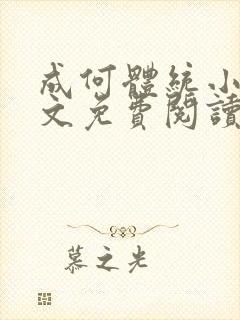 成何體統小
文免費閱讀
慕之光